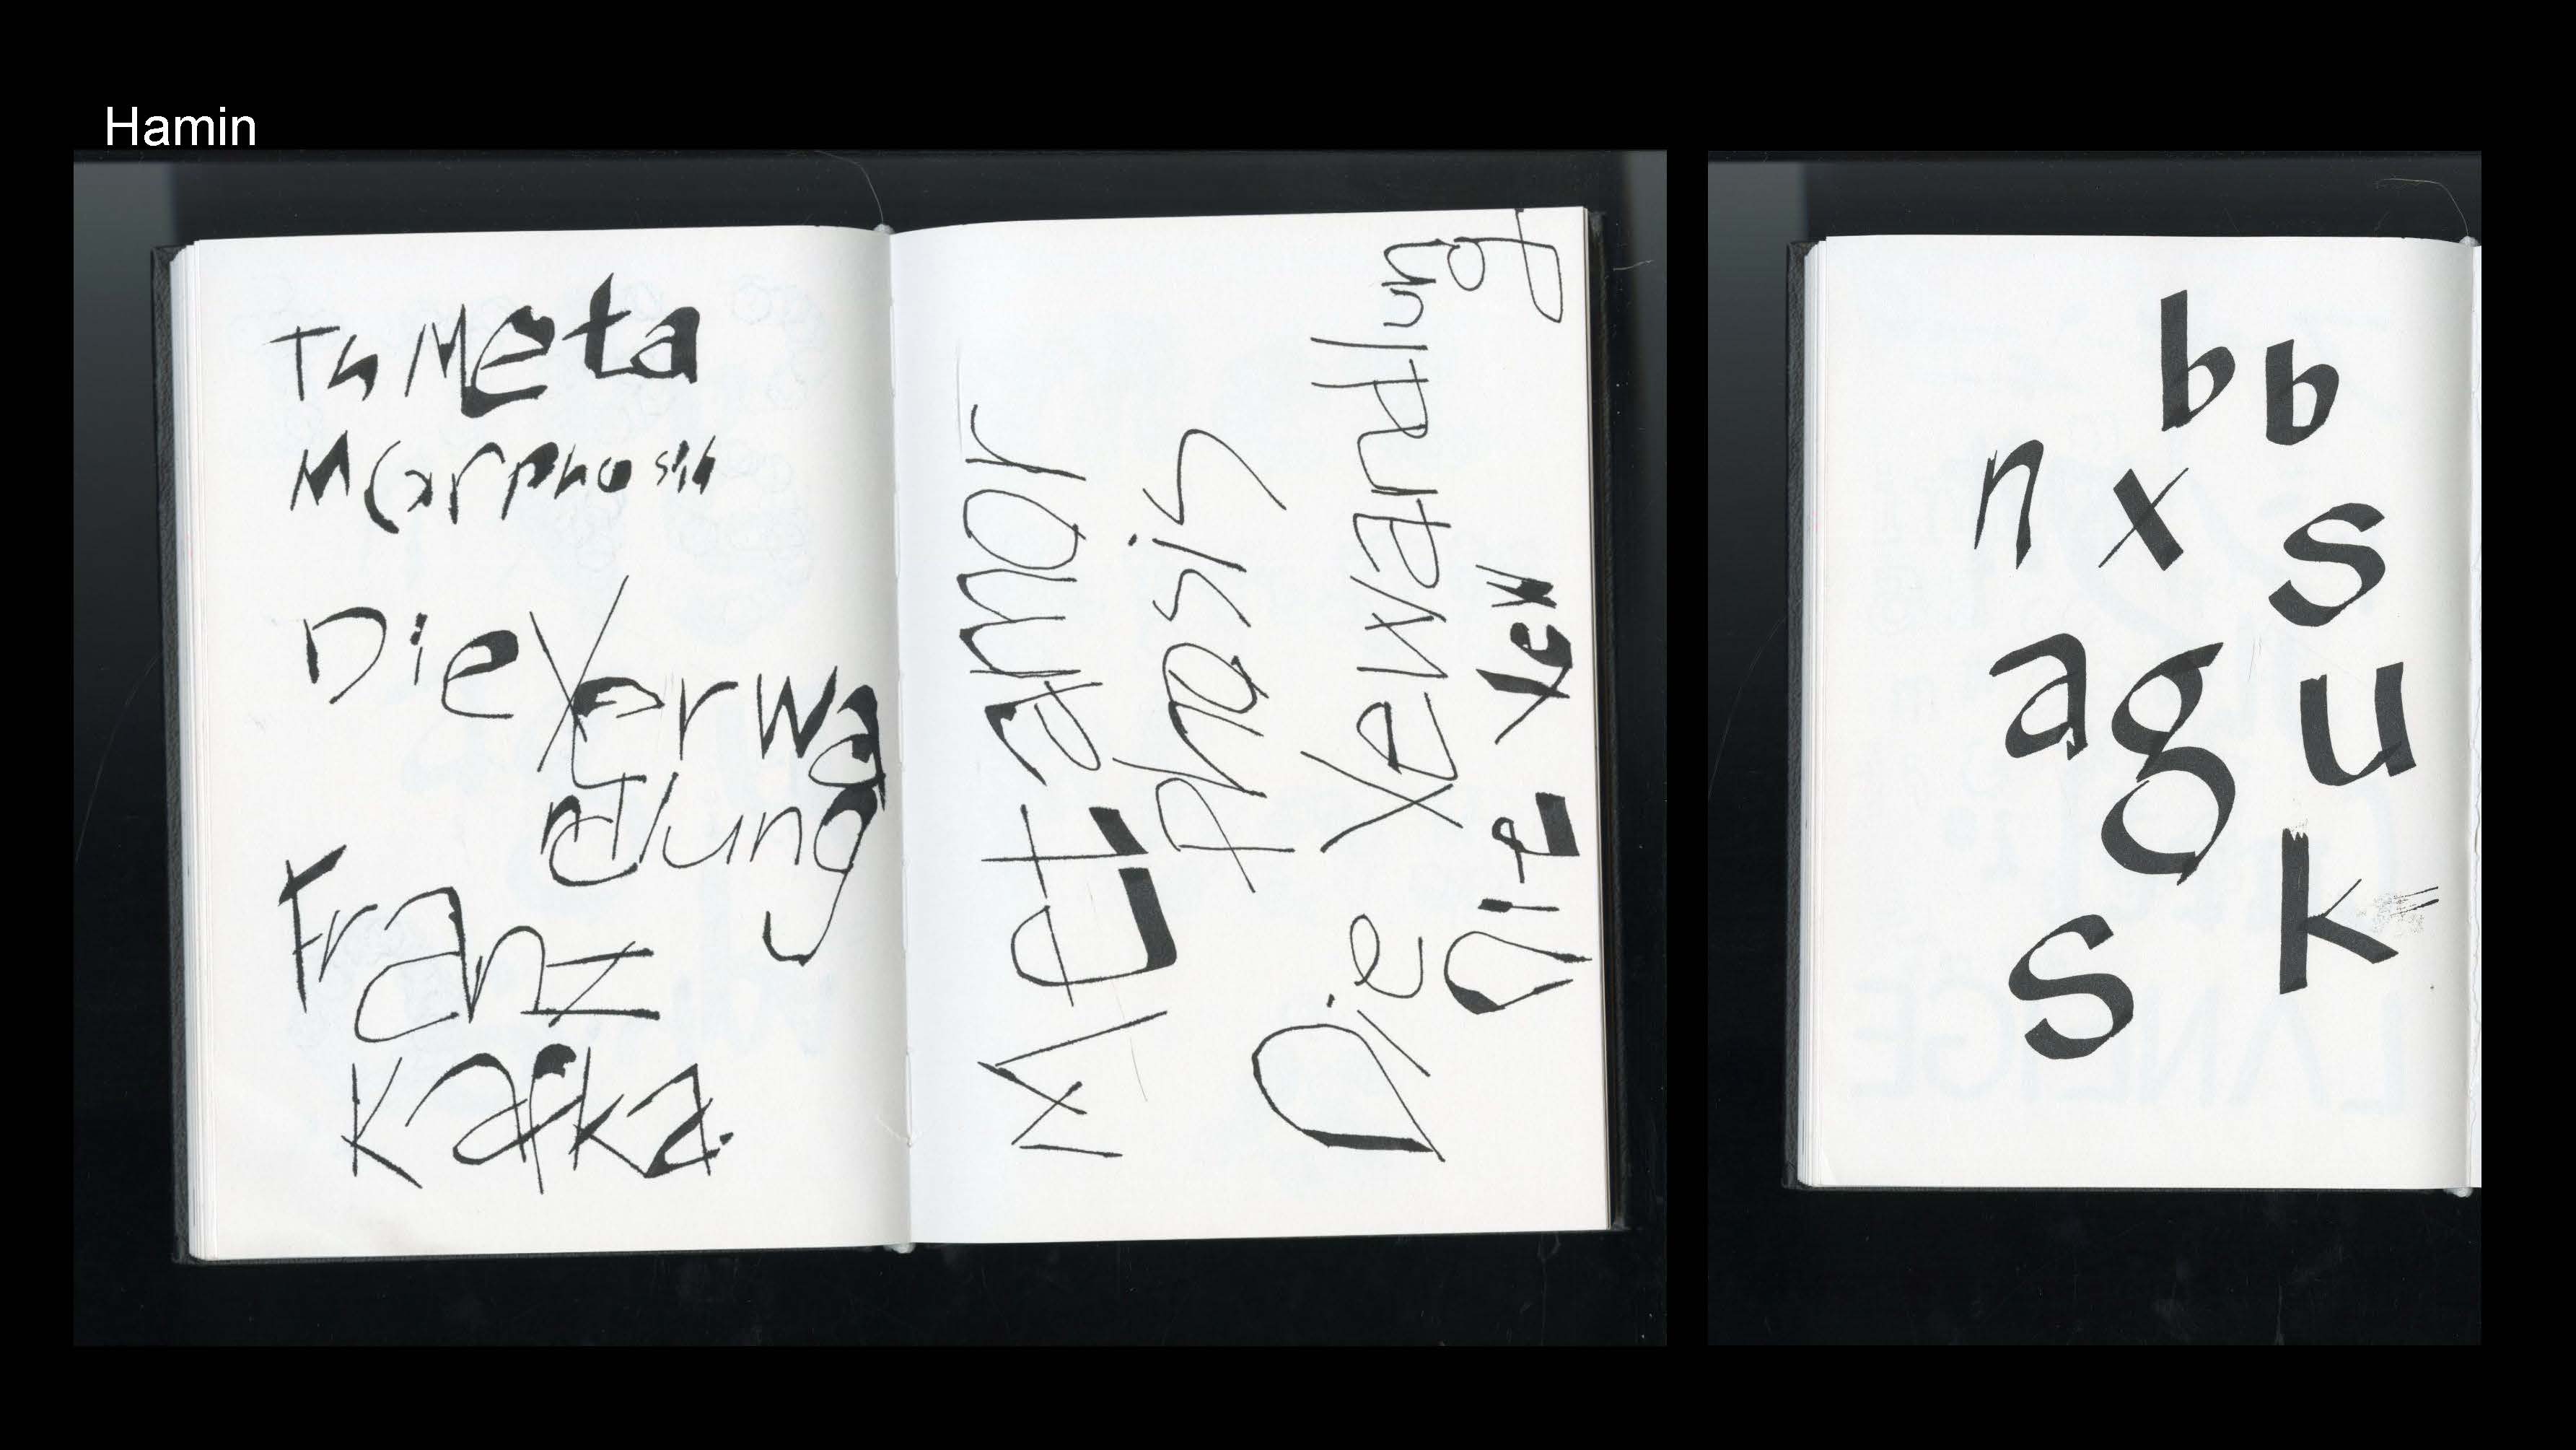 Hamin
Th Meta
Morphosis
Die Verwa
ndlung
Franz
Kafka.
Metamor
phosis
Die Xewandlung
Die Xew
b b
n x
s
a g u
k
s